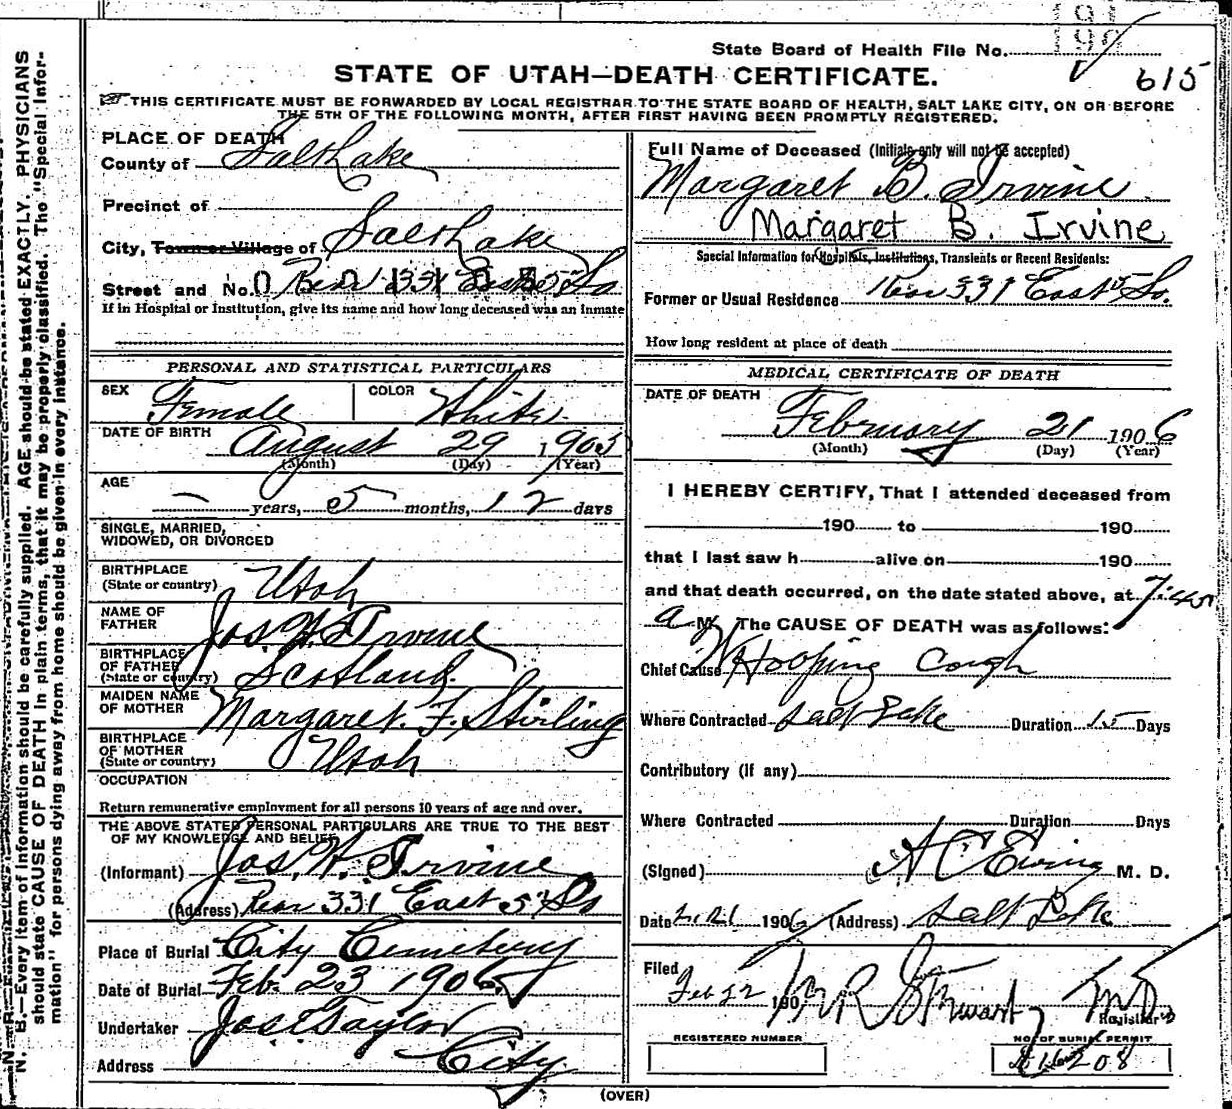 State Board of Health File No.
615
STATE OF UTAH—DEATH CERTIFICATE.
THIS CERTIFICATE MUST BE FORWARDED BY LOCAL REGISTRAR TO THE STATE BOARD OF HEALTH, SALT LAKE CITY, ON OR BEFORE
THE 5TH OF THE FOLLOWING MONTH, AFTER FIRST HAVING BEEN PROMPTLY REGISTERED.
PLACE OF DEATH
County of Salt Lake
Precinct of
City, Town or Village of Salt Lake
Street and No. Rear 331 East 5 So
If in Hospital or Institution, give its name and how long deceased was an inmate
PERSONAL AND STATISTICAL PARTICULARS
SEX Female COLOR White
DATE OF BIRTH August 29 1905
(Month) (Day) (Year)
AGE — years, 5 months, 12 days
SINGLE, MARRIED,
WIDOWED, OR DIVORCED
BIRTHPLACE
(State or country) Utah
NAME OF
FATHER Jos. H. Irvine
BIRTHPLACE
OF FATHER
(State or country) Scotland.
MAIDEN NAME
OF MOTHER Margaret. F. Stirling
BIRTHPLACE
OF MOTHER
(State or country) Utah
OCCUPATION
Return remunerative employment for all persons 10 years of age and over.
THE ABOVE STATED PERSONAL PARTICULARS ARE TRUE TO THE BEST
OF MY KNOWLEDGE AND BELIEF
(Informant) Jos. H. Irvine
(Address) Rear 331 East 5th So
Place of Burial City Cemetery
Date of Burial Feb. 23 1906
Undertaker Jos E Taylor
Address City.
Full Name of Deceased (Initials only will not be accepted)
Margaret B. Irvine
Margaret B. Irvine
Special Information for Hospitals, Institutions, Transients or Recent Residents:
Former or Usual Residence Rear 331 East 5 So.
How long resident at place of death
MEDICAL CERTIFICATE OF DEATH
DATE OF DEATH
February 21 1906
(Month) (Day) (Year)
I HEREBY CERTIFY, That I attended deceased from
190 to 190
that I last saw h alive on 190
and that death occurred, on the date stated above, at 7:45
a M. The CAUSE OF DEATH was as follows:
Chief Cause Whooping Cough
Where Contracted Salt Lake Duration 15 Days
Contributory (If any)
Where Contracted Duration Days
(Signed) A C Ewing M. D.
Date 2.21 1906 (Address) Salt Lake
Filed
Feb 22 190 Stewart MD
Registrar
REGISTERED NUMBER NO. OF BURIAL PERMIT
208
(OVER)
N. B.—Every item of information should be carefully supplied. AGE should be stated EXACTLY. PHYSICIANS
should state CAUSE OF DEATH in plain terms, that it may be properly classified. The "Special Infor-
mation" for persons dying away from home should be given in every instance.